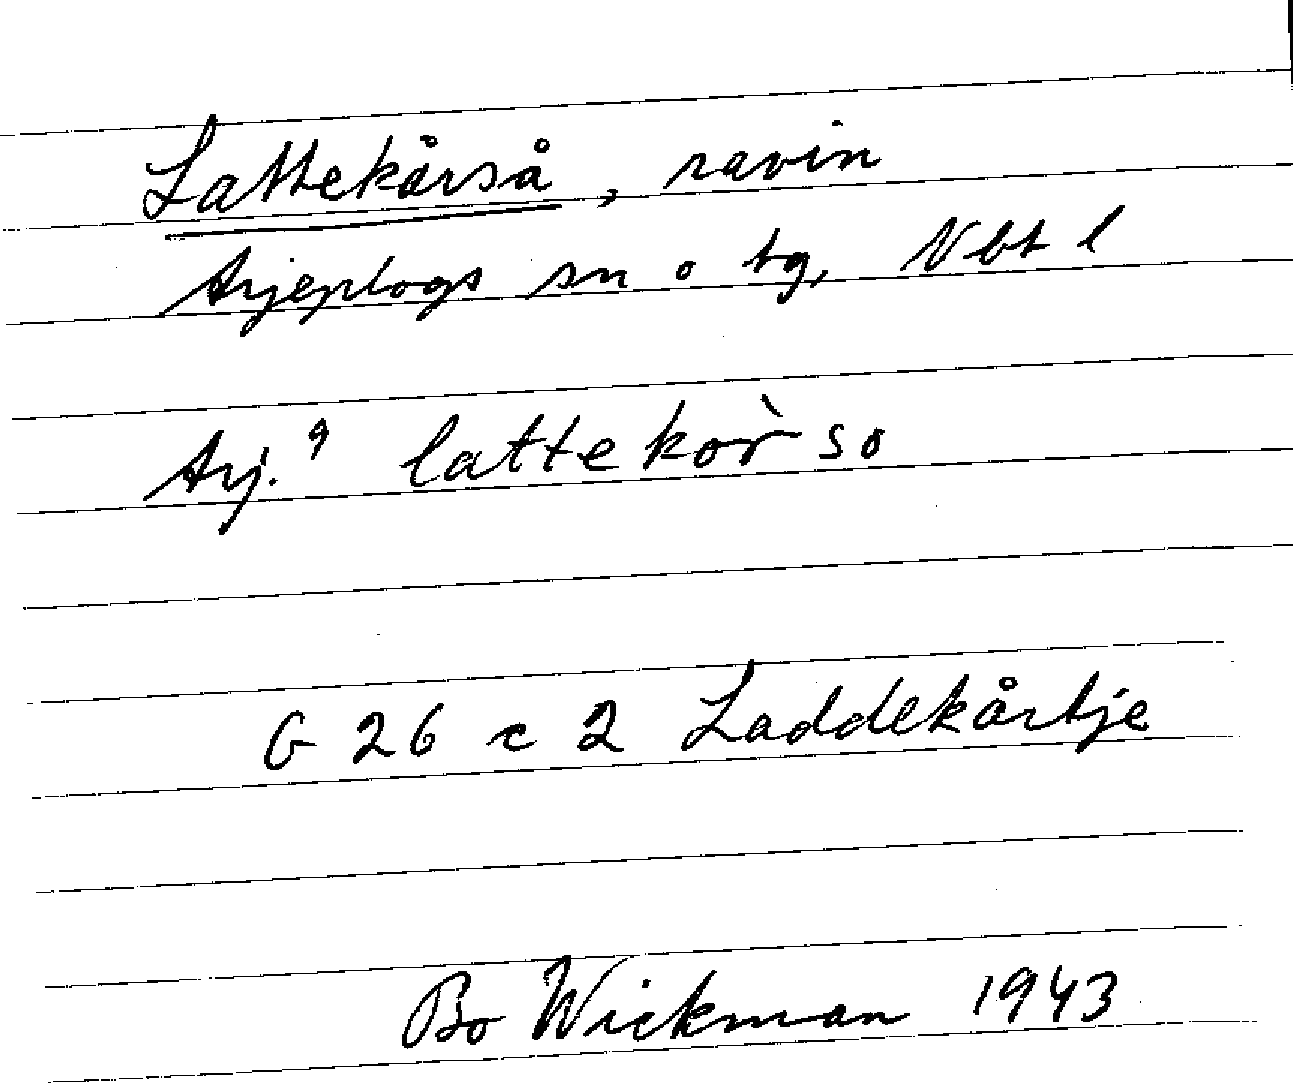 Lattekårså, ravin
Arjeplogs sn o tg, Nbt l
Arj.⁹ lattekor̀so
G 26 c 2 Laddekårtje
Bo Wickman 1943